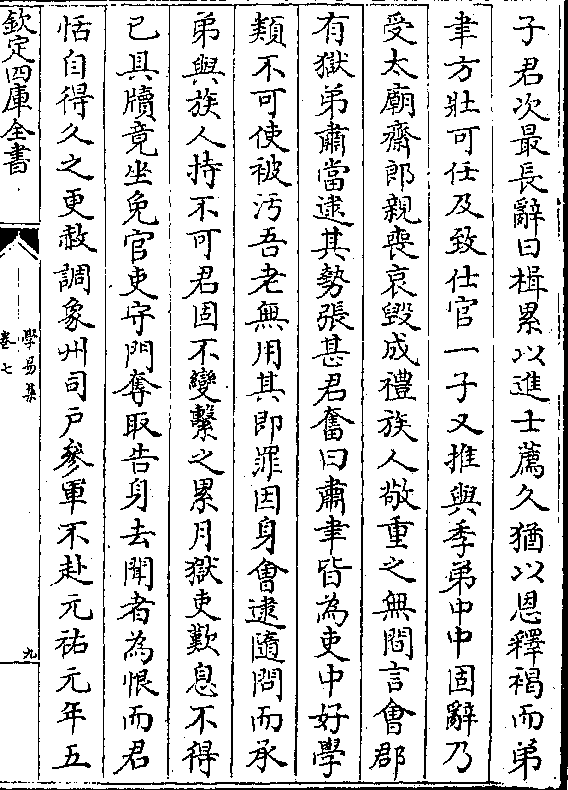 子君次最長辭曰楫累以進士薦久猶以恩釋褐而弟
聿方壯可任及致仕官一子又推與季弟中中固辭乃
受太廟齋郎親喪哀毀成禮族人敬重之無間言會郡
有獄弟肅當逮其勢張甚君奮曰肅聿皆為吏中好學
類不可使被汚吾老無用其即罪因身會逮隨問而承
弟與族人持不可君固不變繫之累月獄吏歎息不得
已具牘竟坐免官吏守門奪取告身去聞者為恨而君
恬自得久之更赦調象州司戶參軍不赴元祐元年五
欽定四庫全書
學易集
卷七
九